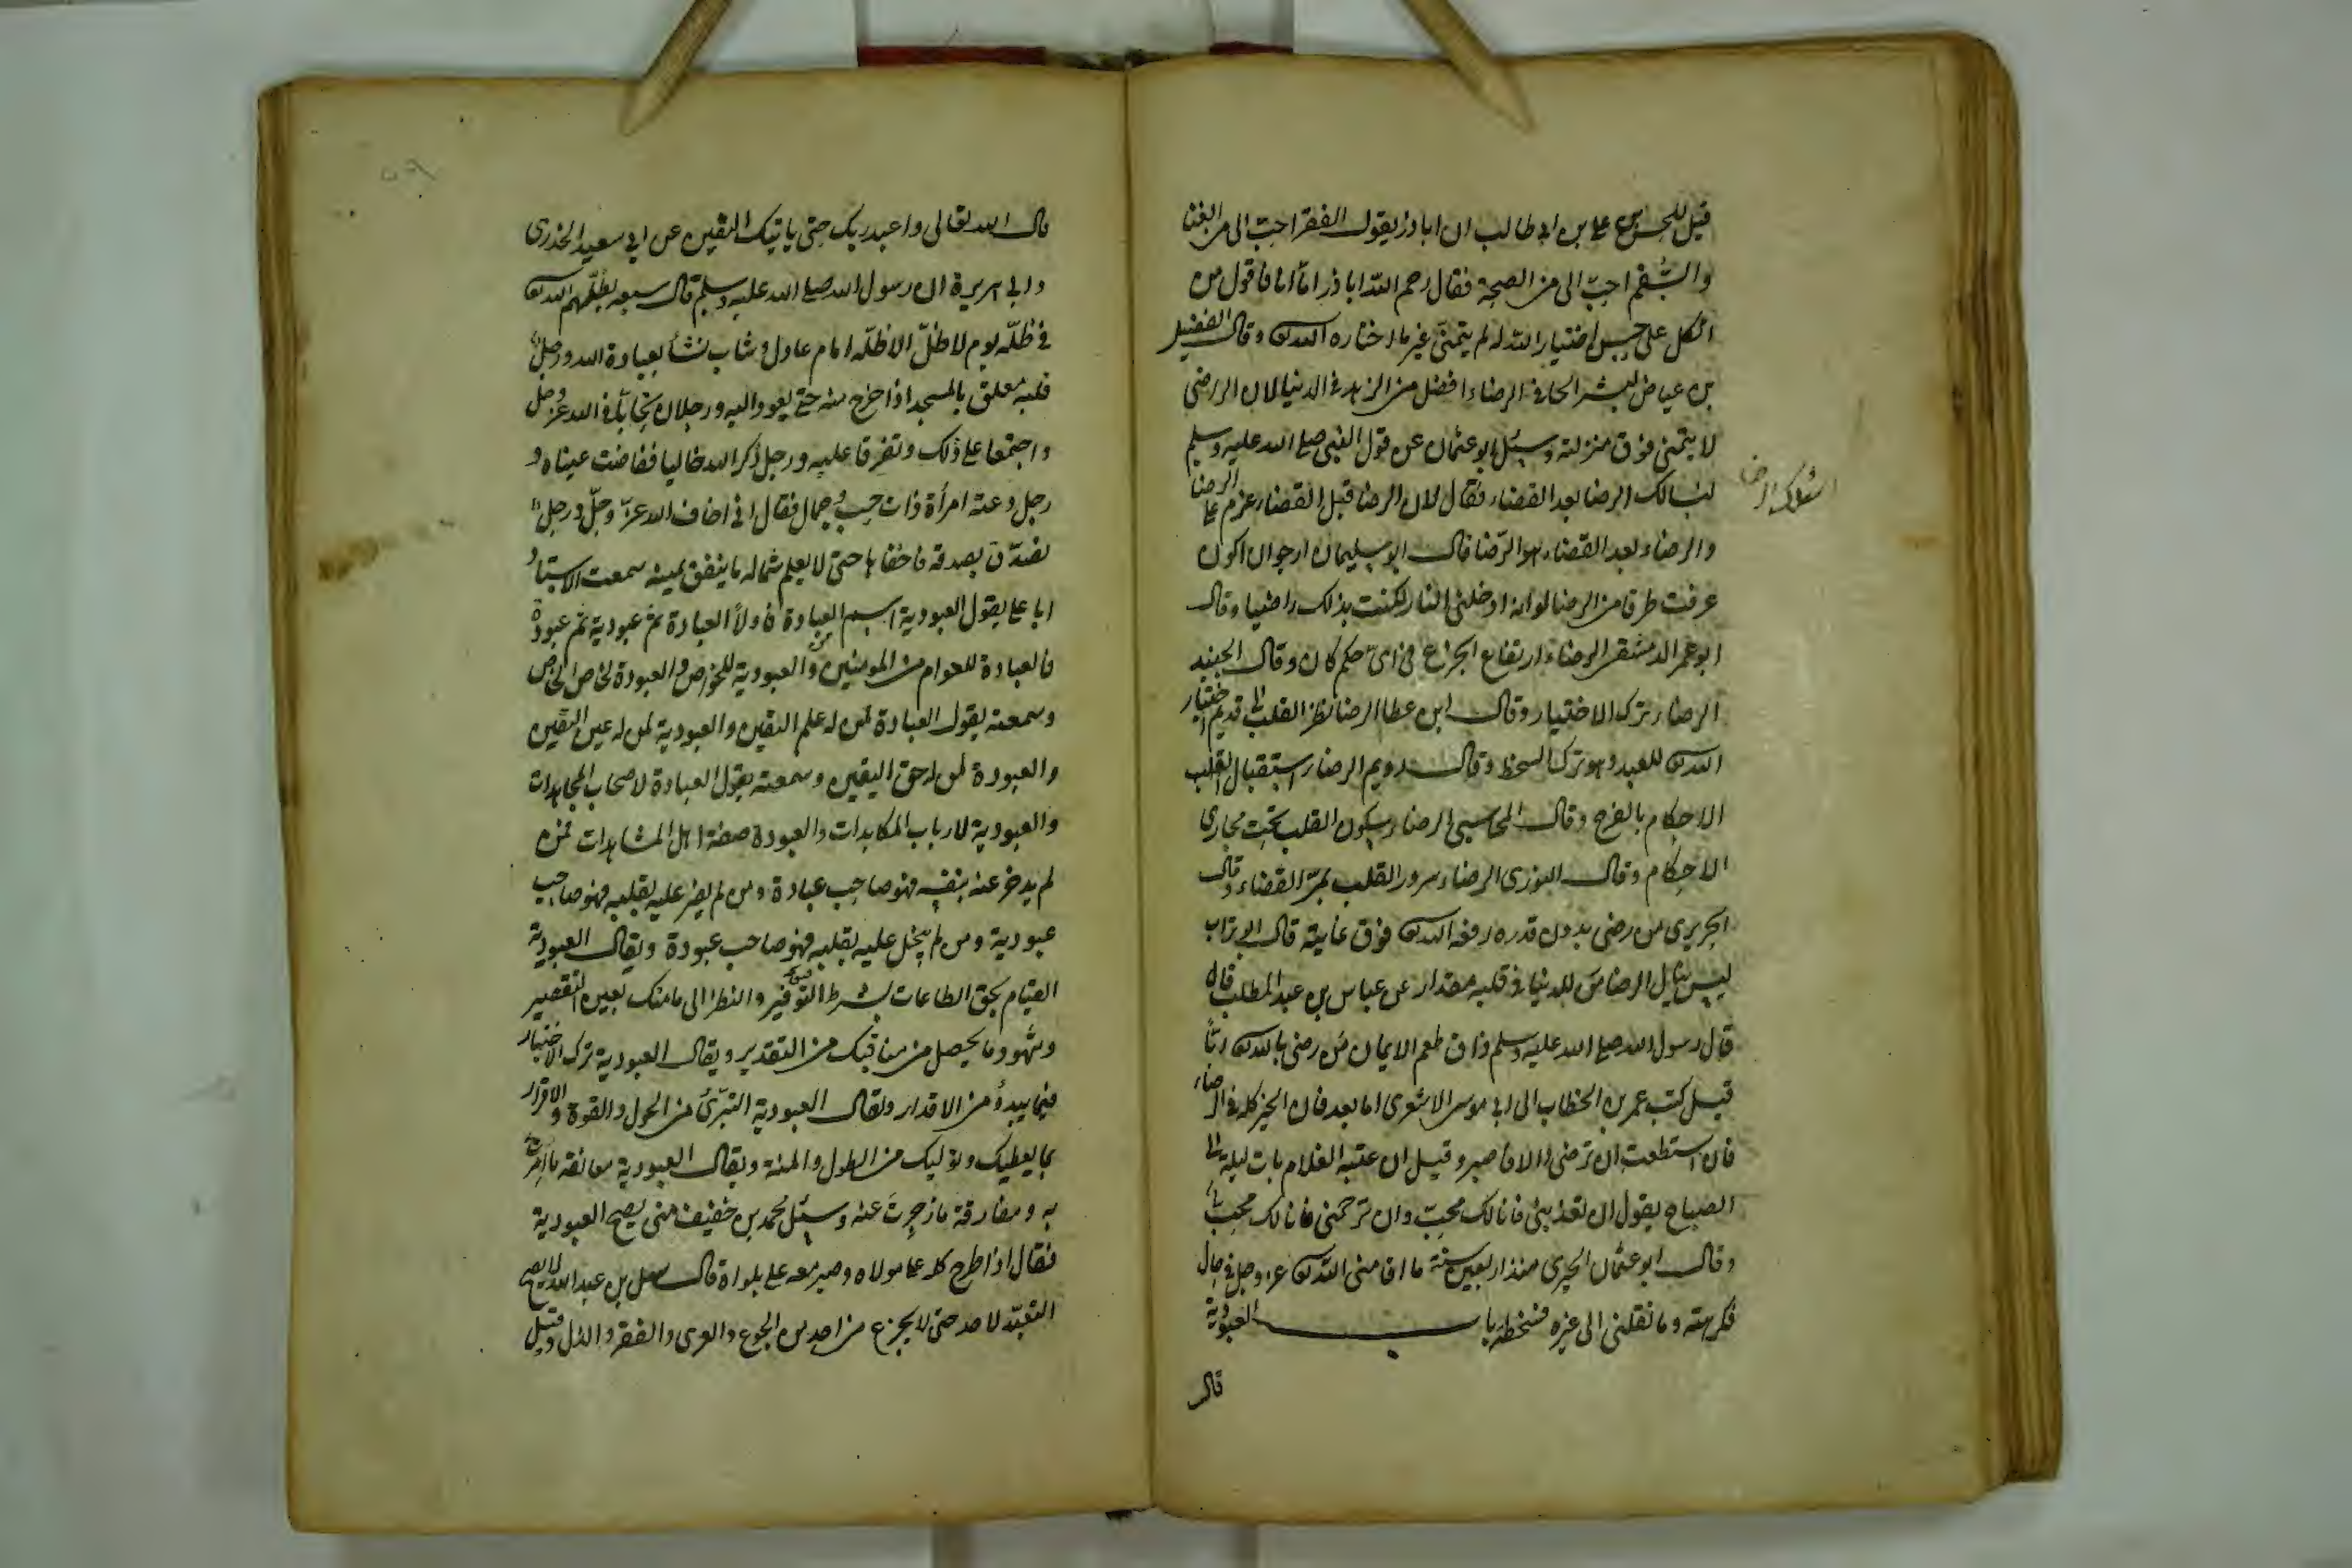 قيل للحسن بن علي بن ابي طالب ان اباذر يقول الفقر احب الى من الغنا
والسُّقم احبّ الى من الصحة فقال رحم الله اباذر اما انا فاقول من
اتكل على حسن اختيار الله له لم يتمنّ غير ما اختاره الله تعالى وقال الفضيل
بن عياض لبشر الحافي الرضاء افضل من الزهد في الدنيا لان الراضى
لا يتمنى فوق منزلته وسئل ابو عثمان عن قول النبى صلى الله عليه وسلم
اسالك الرضا بعد القضاء فقال لان الرضا قبل القضاء عزم على الرضا
والرضاء بعد القضاء هو الرّضا قال ابو سليمان ارجوان اكون
عرفت طرفا من الرضا لو انه ادخلنى النار لكنت بذلك راضيا وقال
ابو عمر الدمشقى الرضاء ارتفاع الجزع فى اىّ حكم كان وقال الجنيد
الرضاء ترك الاختيار وقال ابن عطا الرضا نظر القلب الى قديم اختيار
الله تعالى للعبد وهو ترك السخط وقال رويم الرضاء استقبال القلب
الاحكام بالفرح وقال المحاسبي الرضاء سكون القلب تحت مجارى
الاحكام وقال النورى الرضاء سرور القلب بمرّ القضاء وقال
الجريرى من رضى بدون قدره رفعه الله تعالى فوق غايته قال ابو تراب
ليس ينال الرضا من للدنيا فى قلبه مقدار عن عباس بن عبد المطلب قال
قال رسول الله صلى الله عليه وسلم ذاق طعم الايمان من رضى بالله تعالى ربّاً
قيل كتب عمر بن الخطاب الى ابى موسى الاشعرى اما بعد فان الخير كله فى الرضاء
فان استطعت ان ترضى والا فاصبر وقيل ان عتبة الغلام بات ليلة الى
الصباح يقول ان تعذبنى فانا لك محبّ وان ترحمنى فانا لك محبّ
وقال ابو عثمان الحيرى منذ اربعين سنة ما اقامنى الله تعالى عز وجل فى حال
فكرهته وما نقلنى الى غيره فسخطته باب العبودية
قال
قال الله تعالى واعبد ربك حتى ياتيك اليقين عن ابى سعيد الخدرى
وابى هريرة ان رسول الله صلى الله عليه وسلم قال سبعة يظلّهم الله تعالى
فى ظلّه يوم لا ظلّ الا ظلّه امام عادل وشاب نشأ بعبادة الله ورجل
قلبه معلق بالمسجد اذا خرج منه حتى يعود اليه ورجلان تحابّا فى الله عز وجل
واجتمعا على ذلك وتفرقا عليه ورجل ذكر الله خاليا ففاضت عيناه و
رجل دعته امرأة ذات حسب وجمال فقال انى اخاف الله عزّ وجلّ ورجل
تصدّق بصدقة فاخفاها حتى لا يعلم شماله ما ينفق يمينه سمعت الاستاد
ابا على يقول العبودية اسم العبادة فاولاً العبادة ثم عبودية ثم عبودة
فالعبادة للعوام من المومنين والعبودية للخواص والعبودة لخاص الخاص
وسمعته يقول العبادة لمن له علم اليقين والعبودية لمن له عين اليقين
والعبودة لمن له حق اليقين وسمعته يقول العبادة لاصحاب المجاهدات
والعبودية لارباب المكابدات والعبودة صفة اهل المشاهدات فمن
لم يدخر عنه بنفسه فهو صاحب عبادة ومن لم يضنّ عليه بقلبه فهو صاحب
عبودية ومن لم يبخل عليه بقلبه فهو صاحب عبودة ويقال العبودية
القيام بحق الطاعات بشرط التوفير والنظر الى ما منك بعين التقصير
وشهود ما يحصل من مناقبك من التقدير ويقال العبودية ترك الاختيار
فيما يبدؤ من الاقدار ويقال العبودية التبرّئ من الحول والقوة والاقرار
بما يعطيك ويوليك من الطول والمنة ويقال العبودية معانقة ما امرت
به ومفارقة ما زجرت عنه وسئل محمد بن خفيف متى يصح العبودية
فقال اذا طرح كله على مولاه وصبر معه على بلواه قال سهل بن عبد الله لا يصح
التعبّد لاحد حتى لا يجزع من احد من الجوع والعرى والفقر والذل وقيل